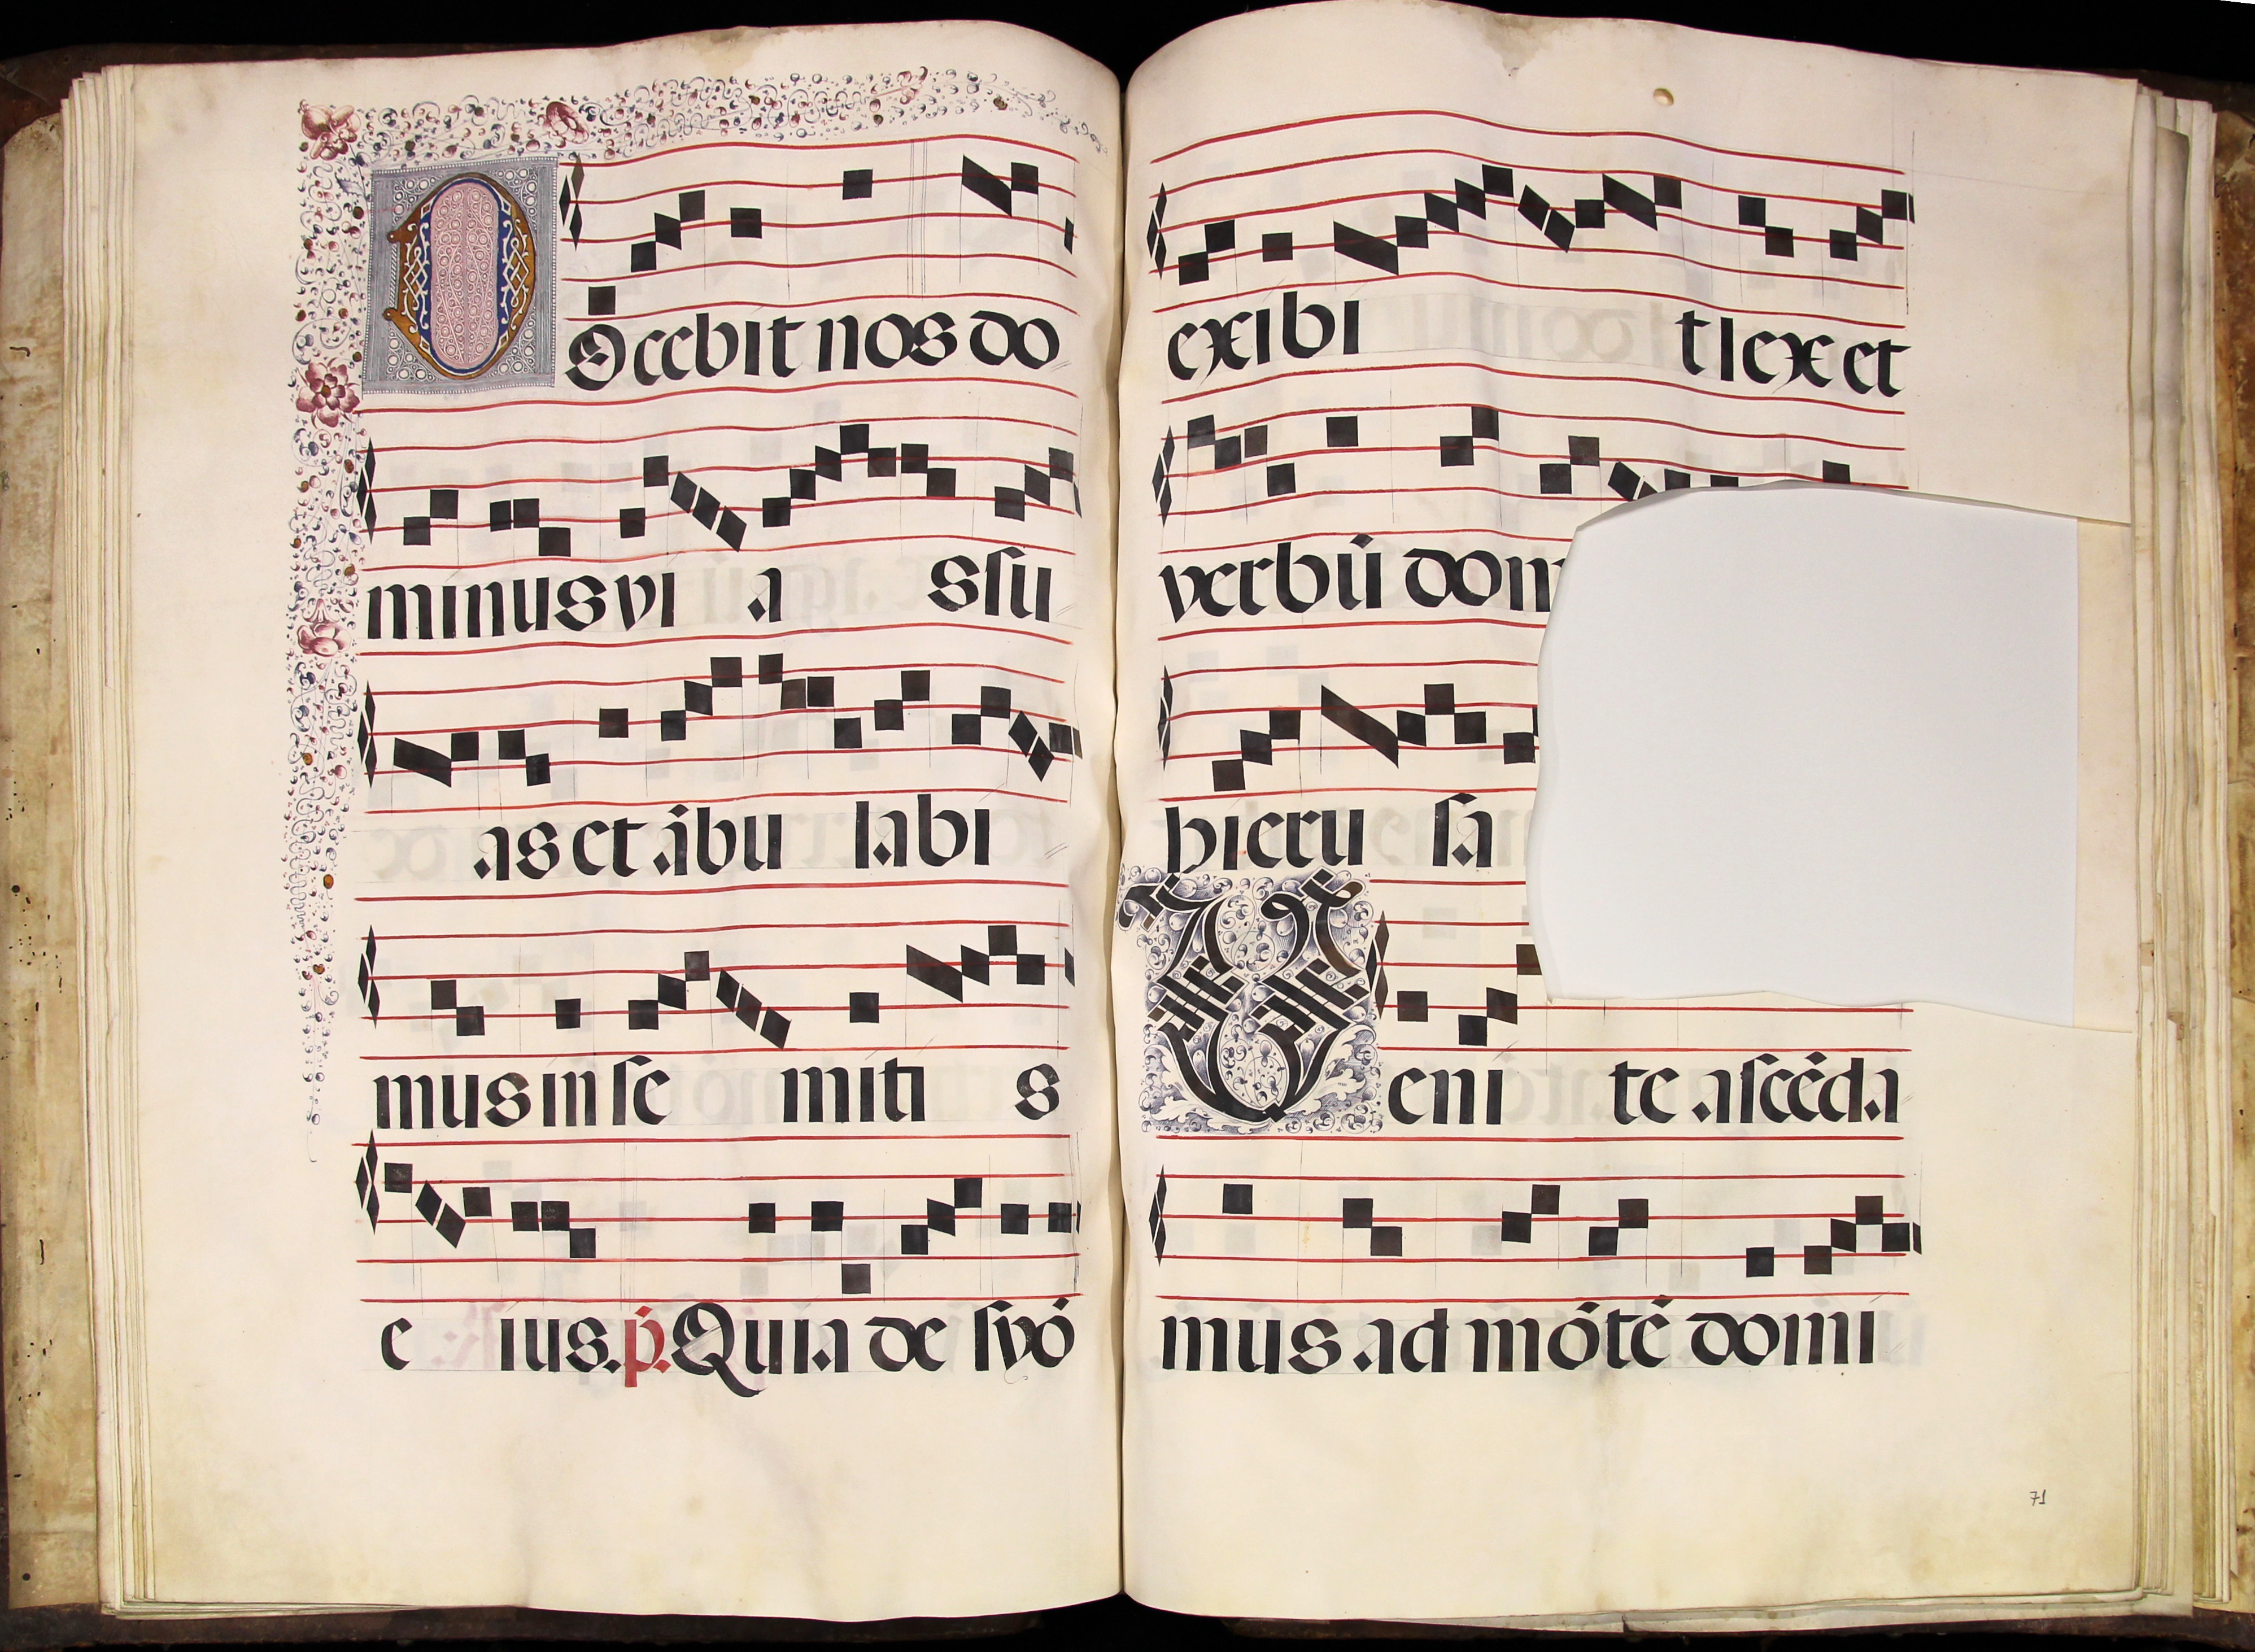 DOccbit nos do
minus vi a s ſu
as et ābu labi
mus in ſe miti s
e ius. p̄. Quia de ſyō
exibi t lex et
verbū dom
hieru ſa
Veni te aſcēda
mus ad mōtē domi
71